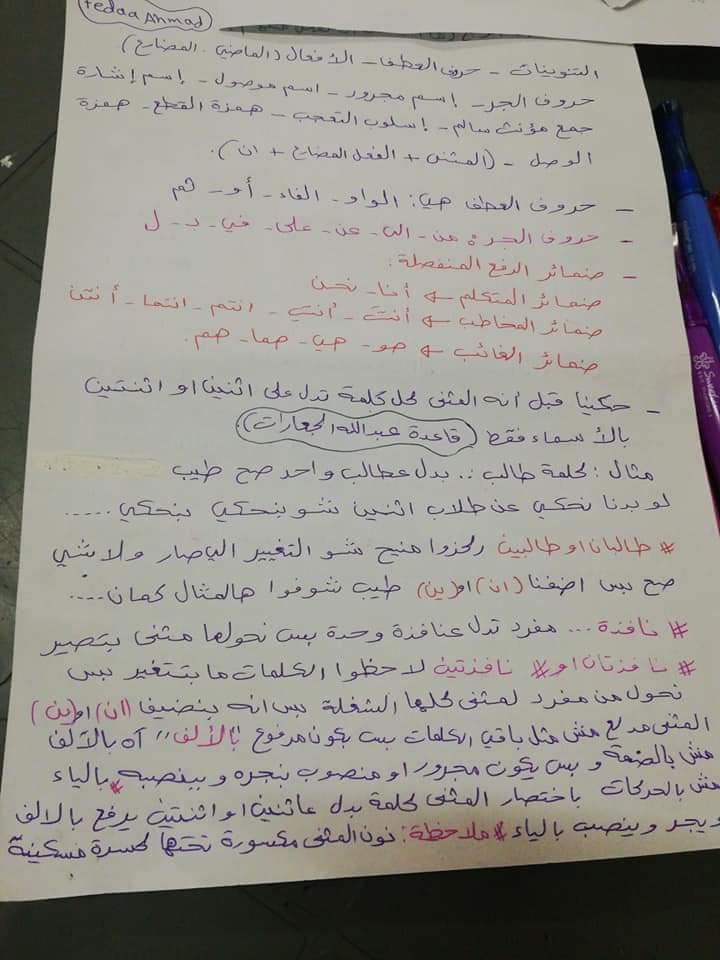 Fedaa Ahmad
التنوينات - حروف العطف - الأفعال (الماضي - المضارع).
حروف الجر - إسم مجرور - اسم موصول - إسم إشارة
جمع مؤنث سالم - إسلوب التعجب - همزة القطع - همزة
الوصل - (المثنى + الفعل المضارع + ان).
- حروف العطف هي: الواو - الفاء - أو - ثم
- حروف الجر: من - الى - عن - على - في - ب - ل
- ضمائر الرفع المنفصلة:
ضمائر المتكلم ← أنا - نحن
ضمائر المخاطب ← أنتَ - أنتِ - انتم - انتما - أنتن
ضمائر الغائب ← هو - هي - هما - هم.
- حكينا قبل أنه المثنى كل كلمة تدل على اثنين او اثنتين
بالأسماء فقط (قاعدة عبدالله الجعارات)
مثال: كلمة طالب .. بدل عطالب واحد صح طيب
لو بدنا نحكي عن طلاب اثنين شو بنحكي بنحكي .....
# طالبان او طالبين ركزوا منيح شو التغيير اليصار ولا شي
صح بس اضفنا (ان) او (ين) طيب شوفوا هالمثال كمان ....
# نافذة ... مفرد تدل عنافذة وحدة بس نحولها مثنى بتصير
# نافذتان او # نافذتين لاحظوا الكلمات ما بتتغير بس
نحول من مفرد لمثنى كلها الشغلة بس انه بنضيف (ان) او (ين)
المثنى مدلع مش مثل باقي الكلمات بس يكون مرفوع "بالألف" آه بالألف
مش بالضمة و بس يكون مجرور او منصوب بنجره و بينصبه بالياء
مش بالحركات # باختصار المثنى كلمة بدل عاثنين او اثنتين يرفع بالالف
ويجر وينصب بالياء # ملاحظة: نون المثنى مكسورة تحتها كسرة مسكينة
Sweet